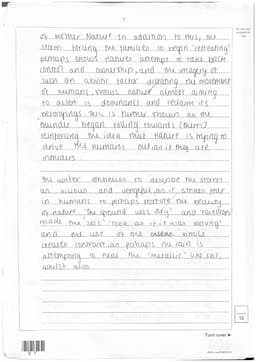 7
of Mother Nature. In addition to this, the
storm forcing the families to begin 'retreating'
perhaps shows natures attempt to take back
control and ownership, and the imagery of
such an abiotic factor dictating the movement
of humans, shows nature almost aiming
to assert is dominance and reclaim its
belongings. This is further shown as the
thunder 'began rolling towards (them)'
reinforcing the idea that nature is trying to
drive the humans out, as it they are
intruders.
The writer continues to describe the storm
as vicious and vengeful, as it strikes fear
in humans to perhaps restore the beauty
of nature. 'The ground was dry' and 'raindrops
made the soil' 'look as if it was boiling'
and the use of the simile
creates contrast, as perhaps the rain is
attempting to heal the 'metallic' like soil,
whilst also
12
Turn over ►